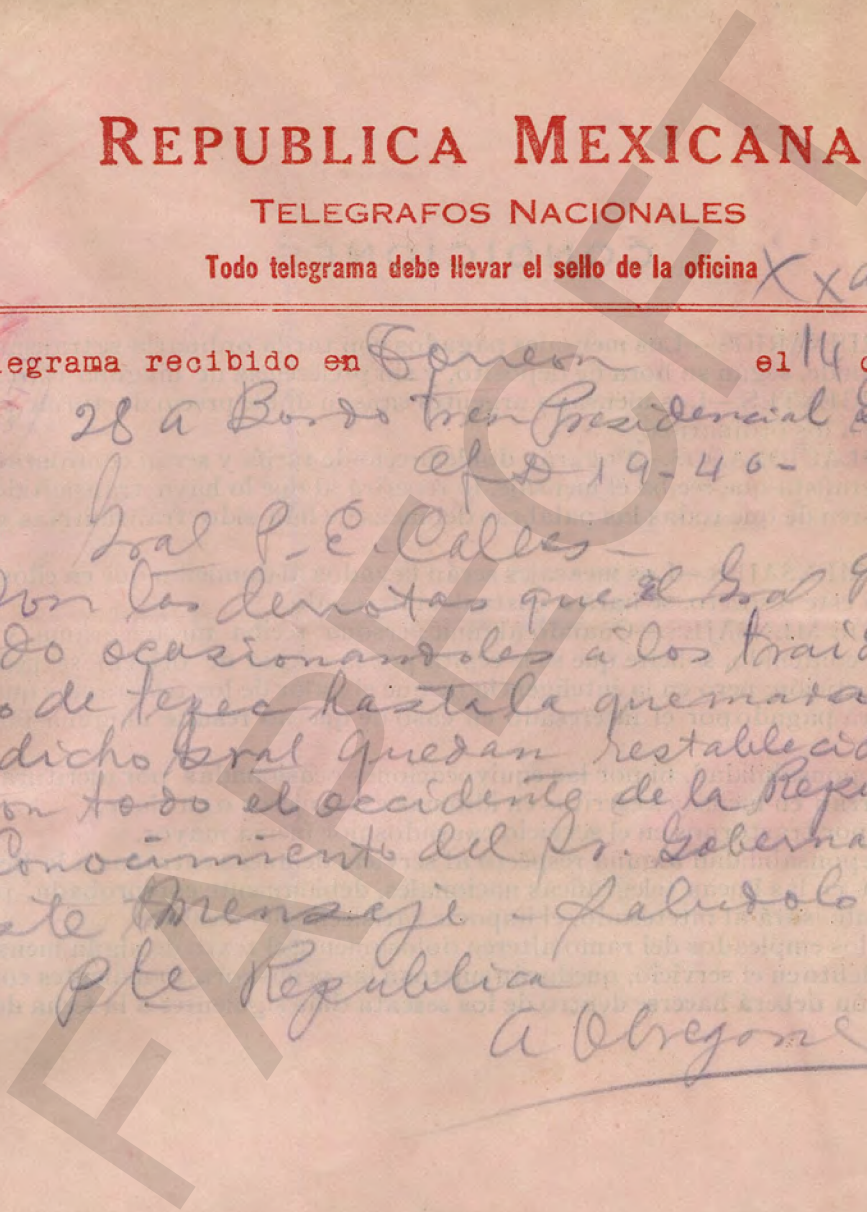 REPUBLICA MEXICANA
TELEGRAFOS NACIONALES
Todo telegrama debe llevar el sello de la oficina
legrama recibido en el 14
28 A Bordo tren Presidencial
Of D-19-40-
Gral P. E. Calles-
on las derrotas que el Gral
do ocasionandoles a los traid
o de tepec hasta la quemada
dicho Gral quedan restablecid
on todo el occidente de la Repu
Conocimiento del Sr. Goberna
ste mensaje Saludolo
Pte Republica
A Obregon
FAPECFT